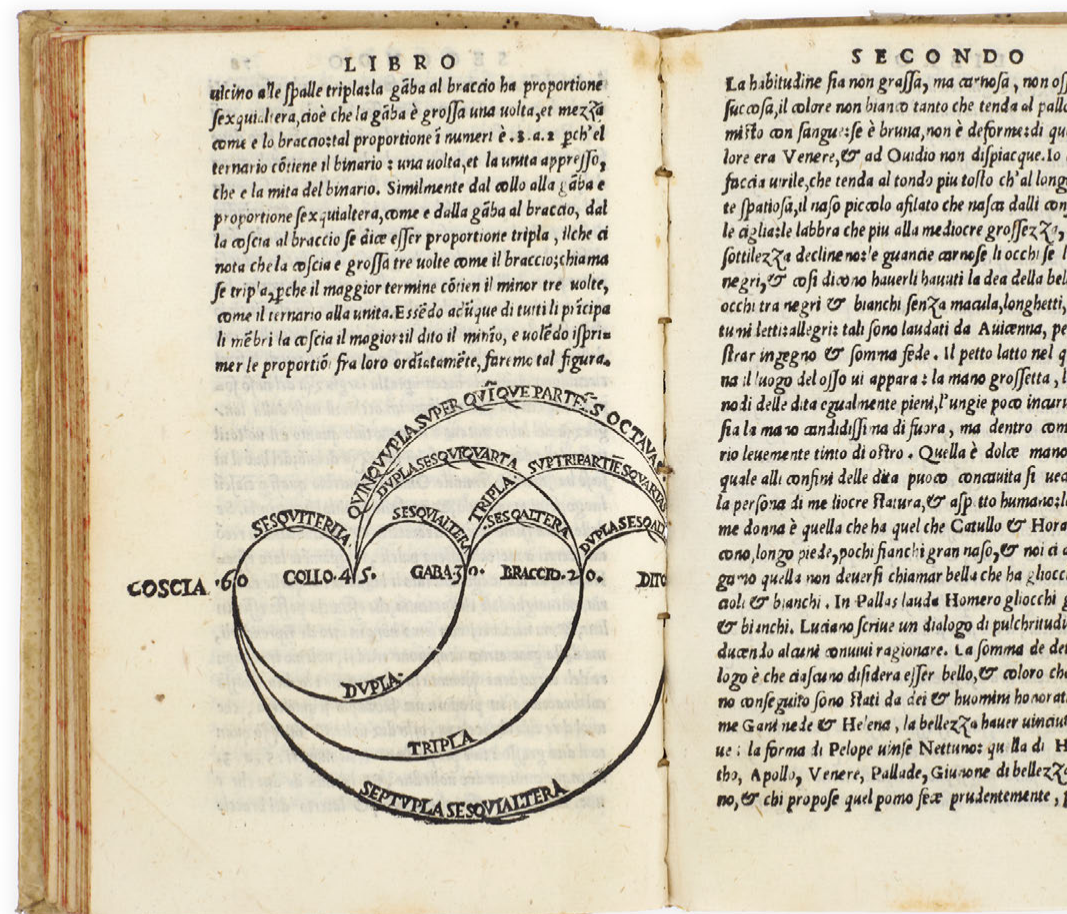 LIBRO
uicino alle spalle tripla:la gāba al braccio ha proportione
sexquialtera,cioè che la gāba è grossa una uolta,et mezza
come e lo braccio:tal proportione ī numeri è .3.a.2 pch'el
ternario cōtiene il binario : una uolta,et la unita appresso,
che e la mita del binario. Similmente dal collo alla gāba e
proportione sexquialtera,come e dalla gāba al braccio, dal
la coscia al braccio se dice esser proportione tripla , ilche ci
nota che la coscia e grossa tre uolte come il braccio;chiama
se tripla,pche il maggior termine cōtien il minor tre uolte,
come il ternario alla unita. Essēdo adūque di tutti li prīcipa
li mēbri la coscia il magior:il dito il minīo, e uolēdo ispri=
mer le proportiō fra loro ordīatamēte, faremo tal figura.
QVINQVVPLA SVPER QVĪQVE PARTĒS OCTAVA
DVPLA SESQVIQVARTA
SVPTRIPARTIĒS QVARTAS
SESQVITERTIA
SESQVIALTERA
TRIPLA.
SESQALTERA
DVPLA SESQALT
COSCIA. 60 COLLO. 45. GABA. 30. BRACCIO. 20. DITO
DVPLA.
TRIPLA.
SEPTVPLA SESQVIALTERA
SECONDO
La habitudine sia non grassa, ma carnosa, non oss
succosa,il colore non bianco tanto che tenda al palle
misto con sangue:se è bruna,non è deforme:di qu
lore era Venere,& ad Ouidio non dispiacque.Io
faccia uirile,che tenda al tondo piu tosto ch'al long
te spatiosa,il naso piccolo afilato che nasca dalli con
le ciglia:le labbra che piu alla mediocre grossezza,
sottilezza decline no:le guancie carnose li occhi se l
negri,& cosi dicono hauerli hauuti la dea della bel
occhi tra negri & bianchi senza macula,longhetti,
tumi letti:allegri: tali sono laudati da Auicenna, pe
strar ingegno & somma fede. Il petto latto nel q
na il luogo del osso ui appara : la mano grossetta, l
nodi delle dita egualmente pieni,l'ungie poco incuru
sia la mano candidissima di fuora , ma dentro com
rio leuemente tinto di ostro . Quella è dolce mano
quale alli confini delle dita puoco concauita si ued
la persona di mediocre statura,& aspetto humano:la
me donna è quella che ha quel che Catullo & Hora
cono,longo piede,pochi fianchi gran naso,& noi ci a
gamo quella non deuersi chiamar bella che ha gliocc
cioli & bianchi . In Pallas lauda Homero gliocchi g
& bianchi. Luciano scriue un dialogo di pulchritudi
ducendo alcuni conuiui ragionare. La somma de det
logo è che ciascuno disidera esser bello,& coloro che
no conseguito sono stati da dei & huomini honorat
me Ganimede & Helena , la bellezza hauer uinciut
ue : la forma di Pelope uinse Nettuno: quella di H
tho, Apollo, Venere, Pallade, Giunone di bellezza
no,& chi propose quel pomo fece prudentemente , p